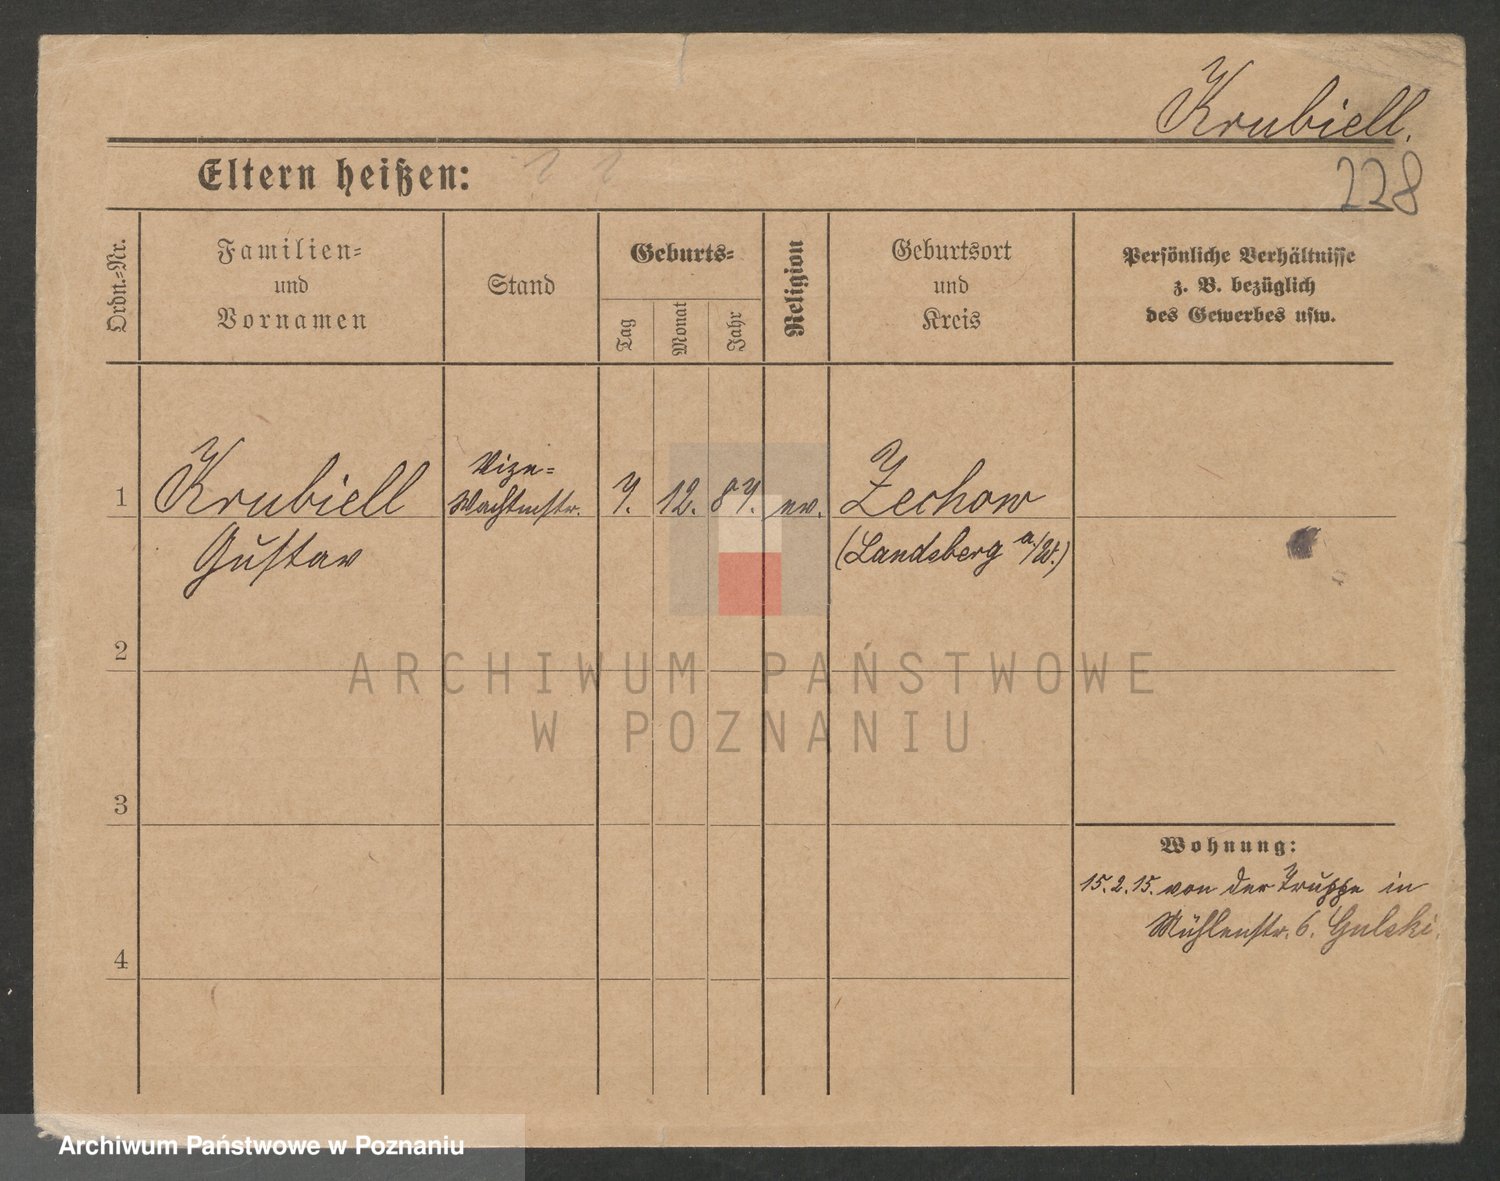 Krubiell.
228
Eltern heißen:
Ordn.-Nr.
Familien-
und
Vornamen
Stand
Geburts-
Tag
Monat
Jahr
Religion
Geburtsort
und
Kreis
Persönliche Verhältnisse
z. B. bezüglich
des Gewerbes usw.
1
Krubiell
Gustav
Vize-
Wachtmstr.
7.
12.
87.
ev.
Zechow
(Landsberg a/W.)
2
3
4
Wohnung:
15.2.15. von der Truppe in
Mühlenstr. 6. Gulski.
ARCHIWUM PAŃSTWOWE
W POZNANIU
Archiwum Państwowe w Poznaniu